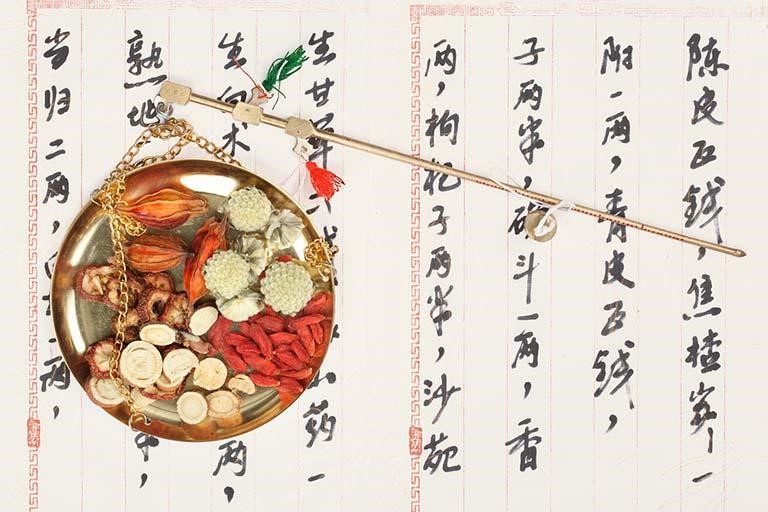 陈皮五钱，焦楂，一
附一两，青皮五钱，
子两半，斗一两，香
两，枸杞子两半，沙苑
生甘草六山药一
生白术两，
熟地，
当归二两，一两，